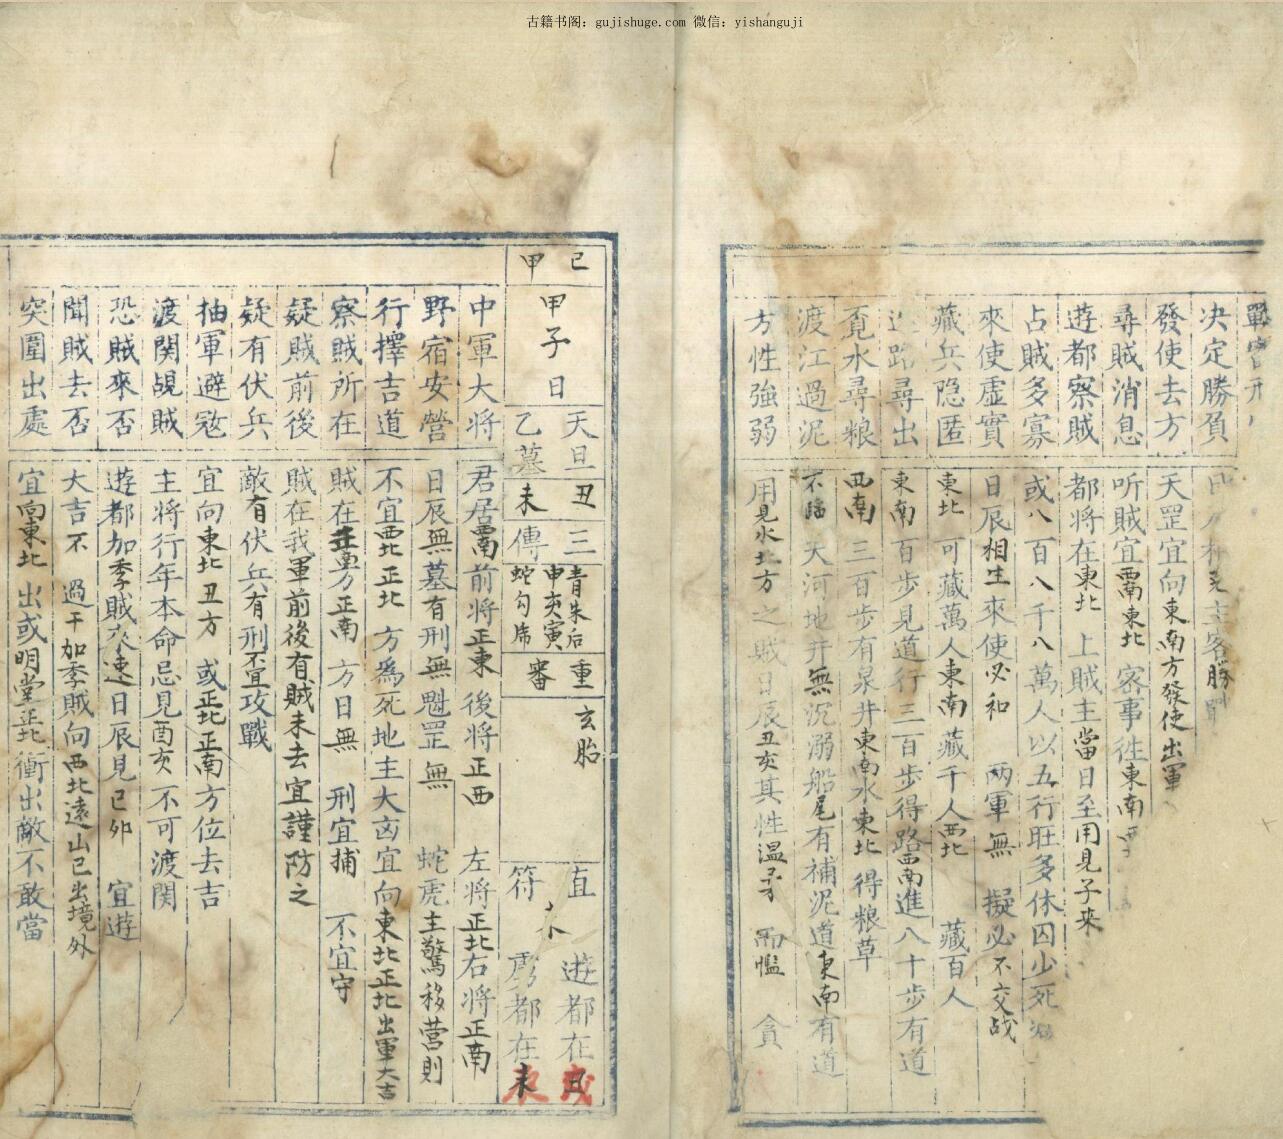 古籍书阁：gujishuge.com 微信：yishanguji
戰
決定勝負 主客勝
發使去方 天罡宜向東南方發使出軍
尋賊消息 听賊宜西南東北 客事徃東南
遊都察賊 都將在東北 上賊主當日至用見子来
占賊多寡 或八百八千八萬人以五行旺多休囚少死
來使虛實 日辰相生來使必和 两軍無 擬必不交战
藏兵隐匿 東北 可藏萬人東南 藏千人西北 藏百人
路尋出 東南 百步見道行三百步得路西南進八十步有道
覓水尋粮 西南 三百步有泉井東南水東北 得粮草
渡江過泥 不臨 天河地井無沉溺船尾有補泥道東南有道
方性強弱 用見水北方 之賊日辰丑亥其性温柔 而懦 貪
己
甲
甲子日
天旦丑
乙墓未
三
傳
青朱后
申亥寅
蛇勾虎
重
審
玄胎
直
符
遊都在丑
都在未
中軍大将 君居西南前将正東 後将正西 左将正北右将正南
野宿安營 日辰無墓有刑無魁罡無 蛇虎主驚移营則
行擇吉道 不宜西北正北 方為死地主大凶宜向東北正北出軍大吉
察賊所在 賊在 方正南 方日無 刑宜捕 不宜守
疑賊前後 賊在我軍前後有賊未去宜謹防之
疑有伏兵 敵有伏兵有刑不宜攻戰
抽軍避寇 宜向東北丑方 或正北正南方位去吉
渡関覘賊 主将行年本命忌見酉亥不可渡関
恐賊來否 遊都加季賊來速日辰見巳卯 宜遊
聞賊去否 大吉不 過干加季賊向西北遠山已出境外
突圍出處 宜向東北 出或明堂正北衝出敵不敢當